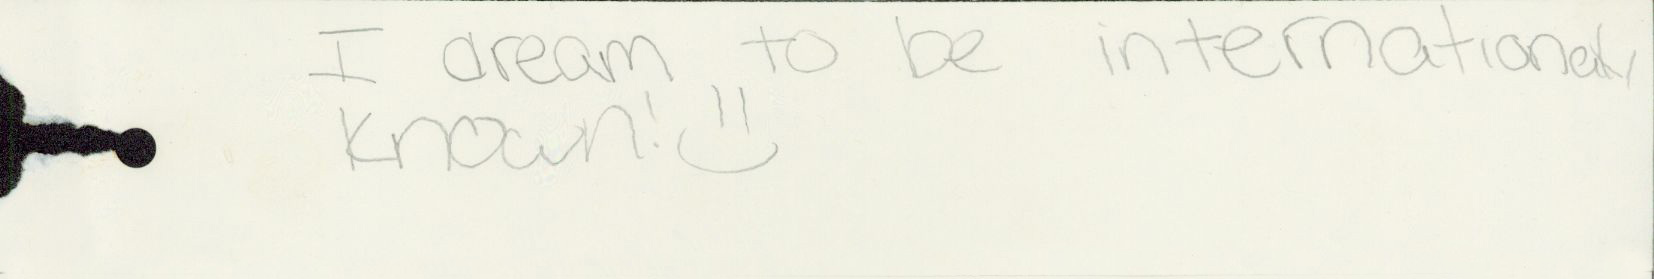 I dream to be internationaly
known! :)